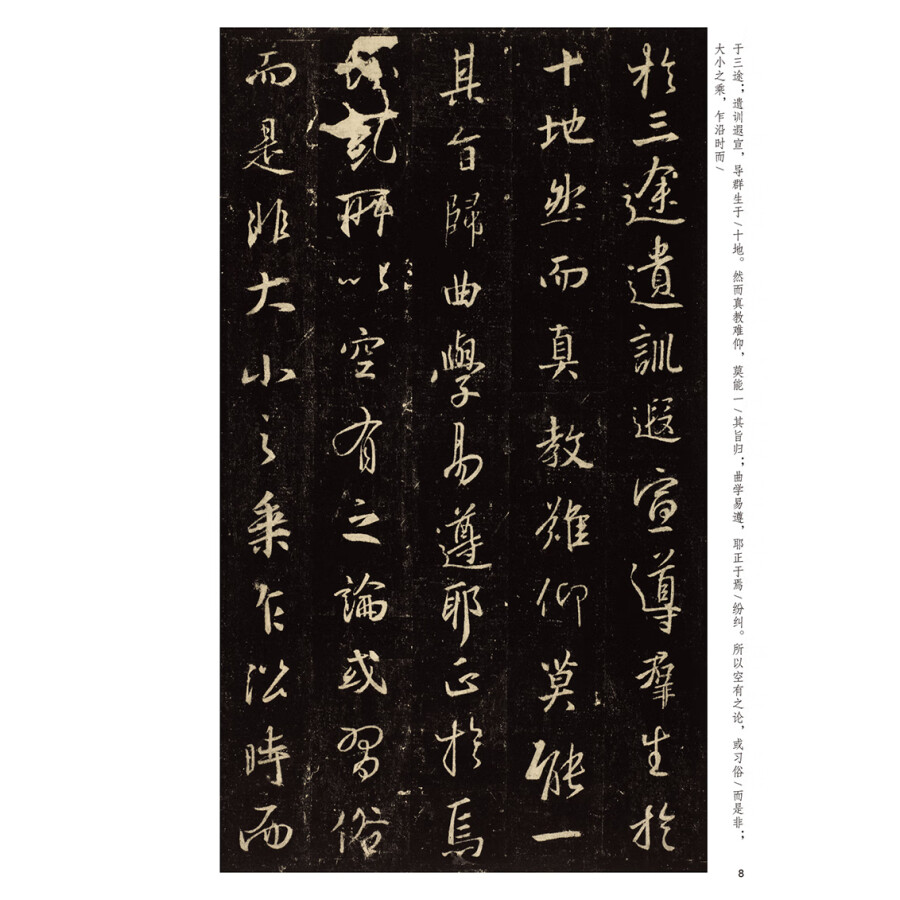 于三途；遗训遐宣，导群生于/十地。然而真教难仰，莫能一/其旨归；曲学易遵，耶正于焉/纷纠。所以空有之论，或习俗/而是非；
大小之乘，乍沿时而/
於三途遺訓遐宣導羣生於
十地然而真教難仰莫能一
其旨歸曲學易遵耶正於焉
紛糺所以空有之論或習俗
而是非大小之乘乍沿時而
8